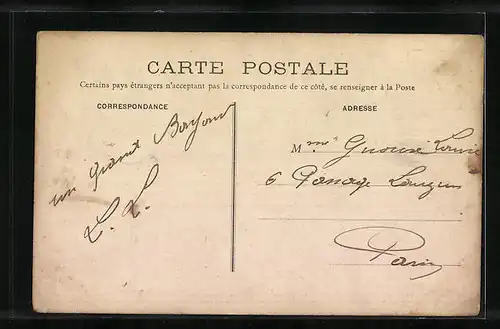 CARTE POSTALE
Certains pays étrangers n'acceptant pas la correspondance de ce côté, se renseigner à la Poste
CORRESPONDANCE
ADRESSE
un grand Bonjour
L. L.
Mme Louise
6 Passage
Paris